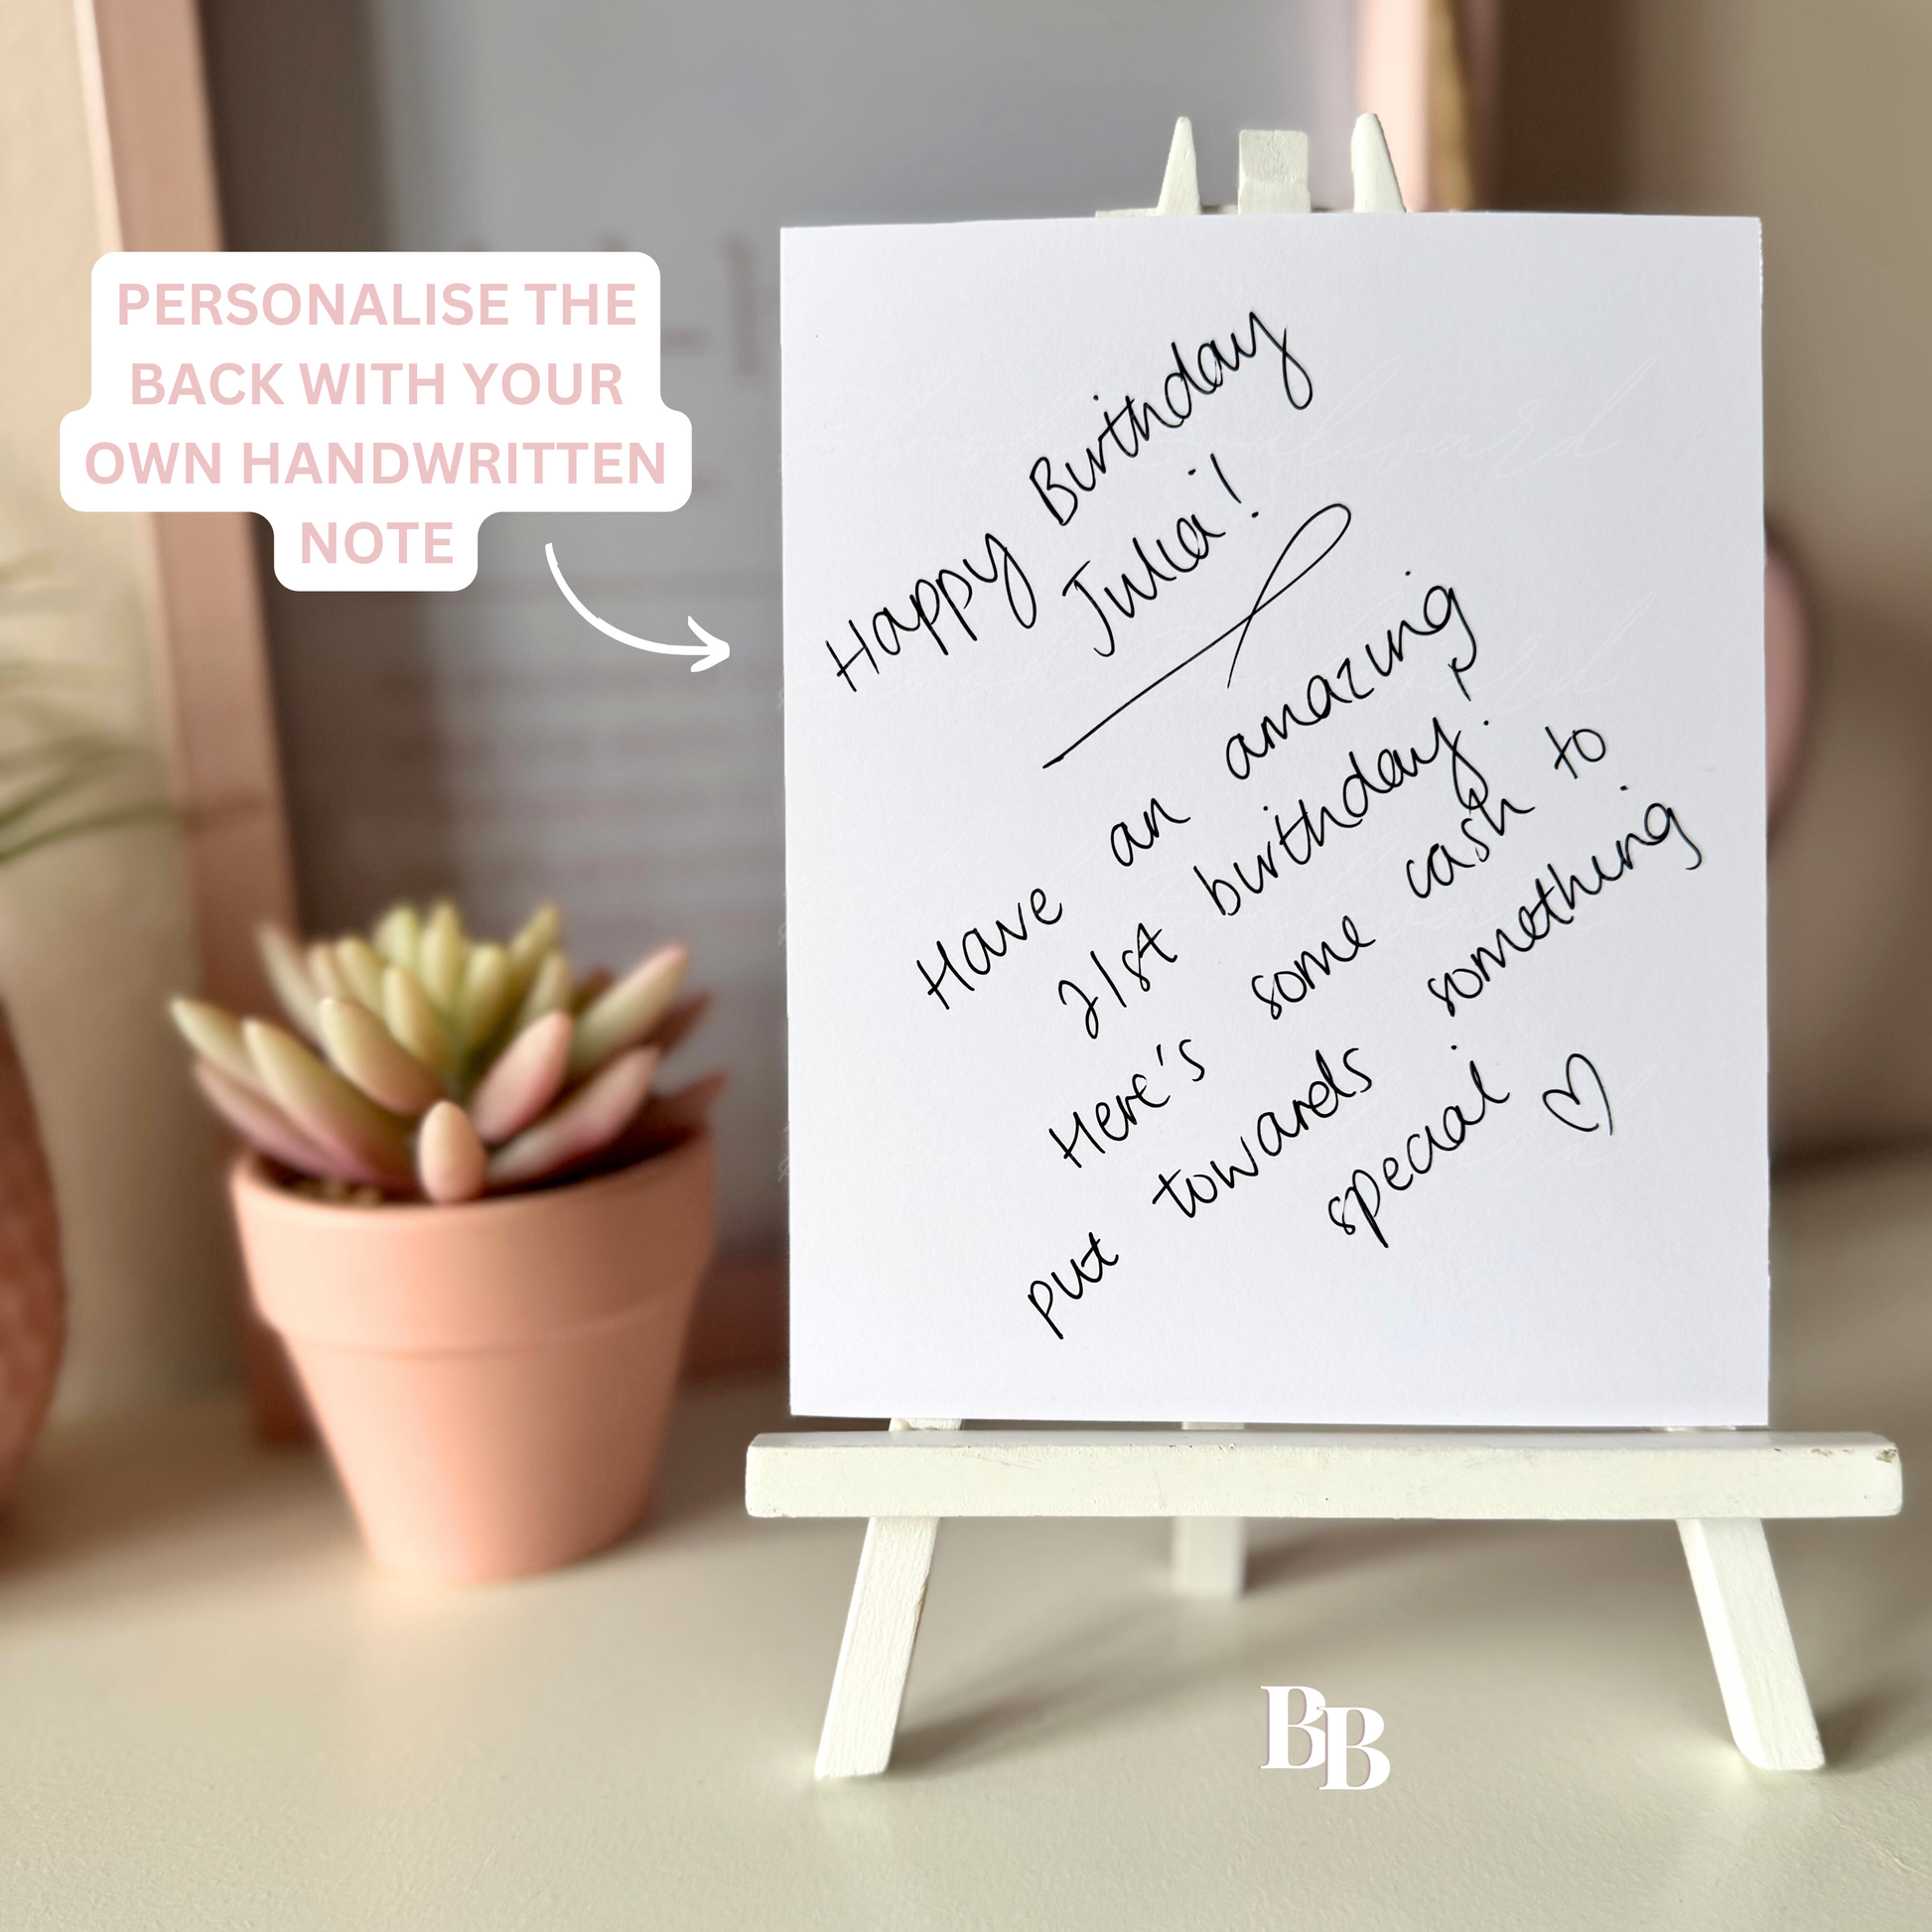 PERSONALISE THE
BACK WITH YOUR
OWN HANDWRITTEN
NOTE
Happy Birthday
Julia!
Have an amazing
21st birthday!
Here's some cash to
put towards something
special ♡
BB